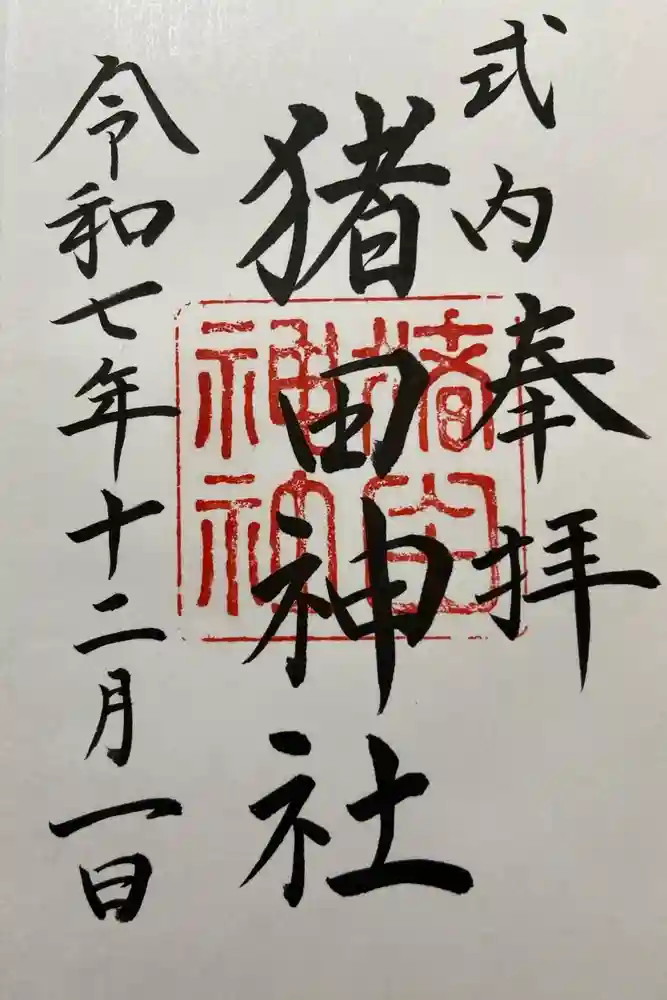 式内
奉拝
猪田神社
令和七年十二月一日